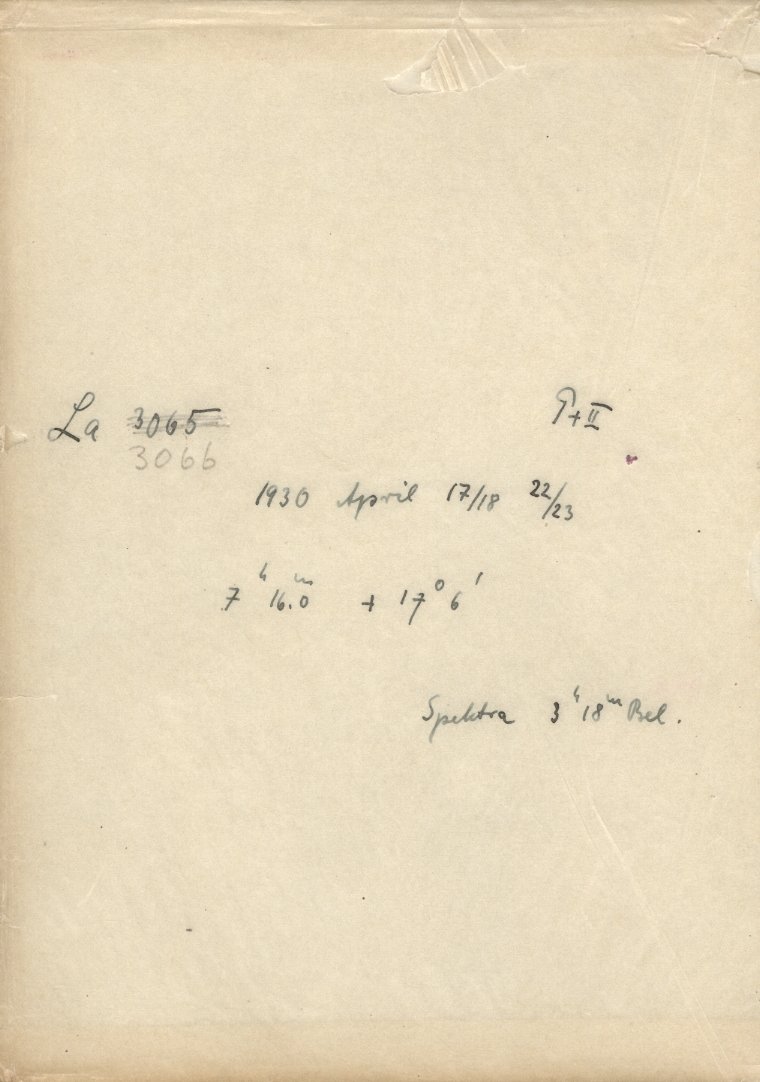 La 3065 P+II
3066
1930 April 17/18 22/23
7h 16.0m + 17° 6'
Spektra 3h 18m Bel.